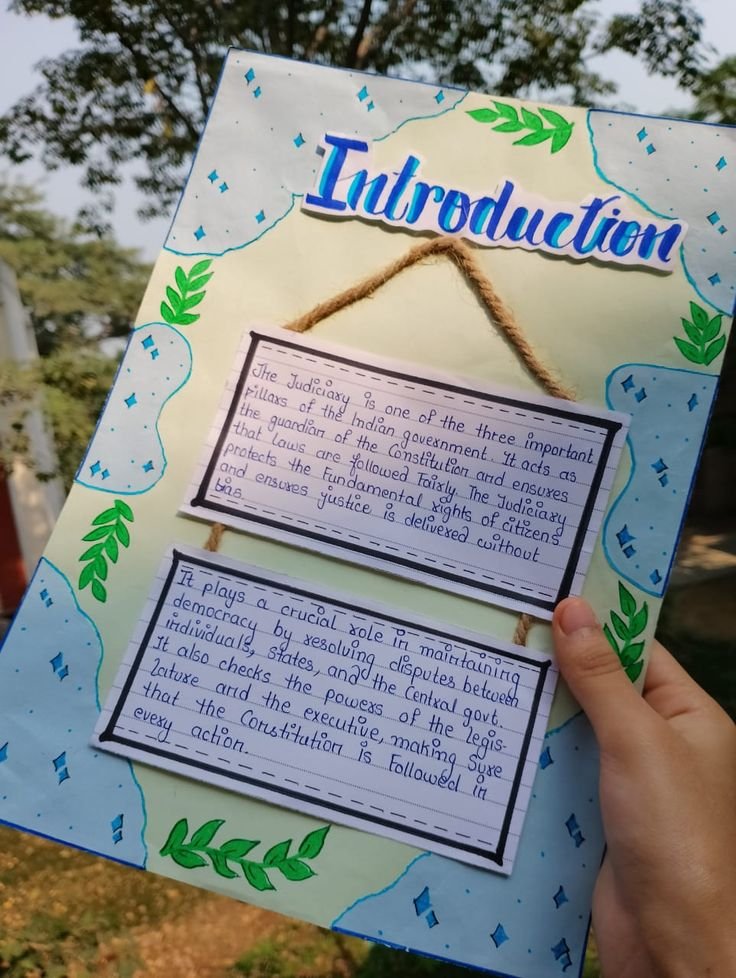 Introduction
The Judiciary is one of the three important
pillars of the Indian government. It acts as
the guardian of the Constitution and ensures
that laws are followed Fairly. The Judiciary
protects the Fundamental rights of citizens
and ensures justice is delivered without
bias.
It plays a crucial role in maintaining
democracy by resolving disputes between
individuals, states, and the Central govt.
It also checks the powers of the legis-
lature and the executive, making sure
that the Constitution is Followed in
every action.